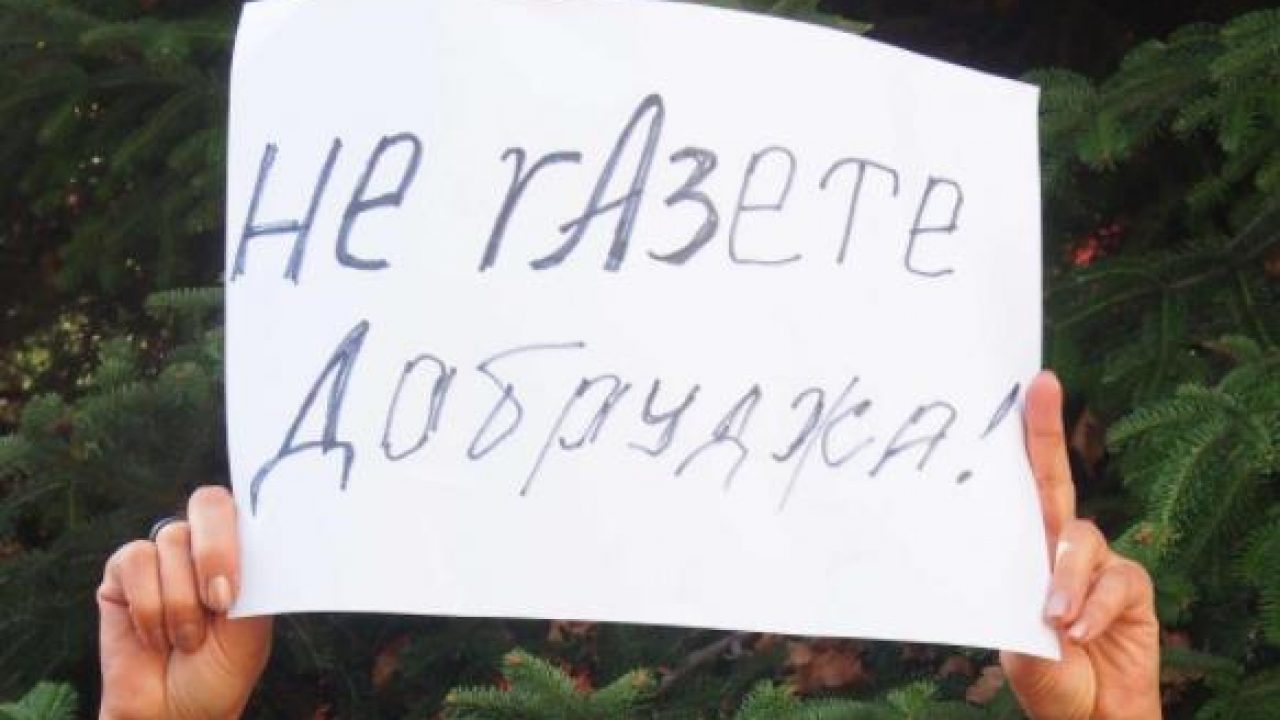 Не гАзете
Добруджа!